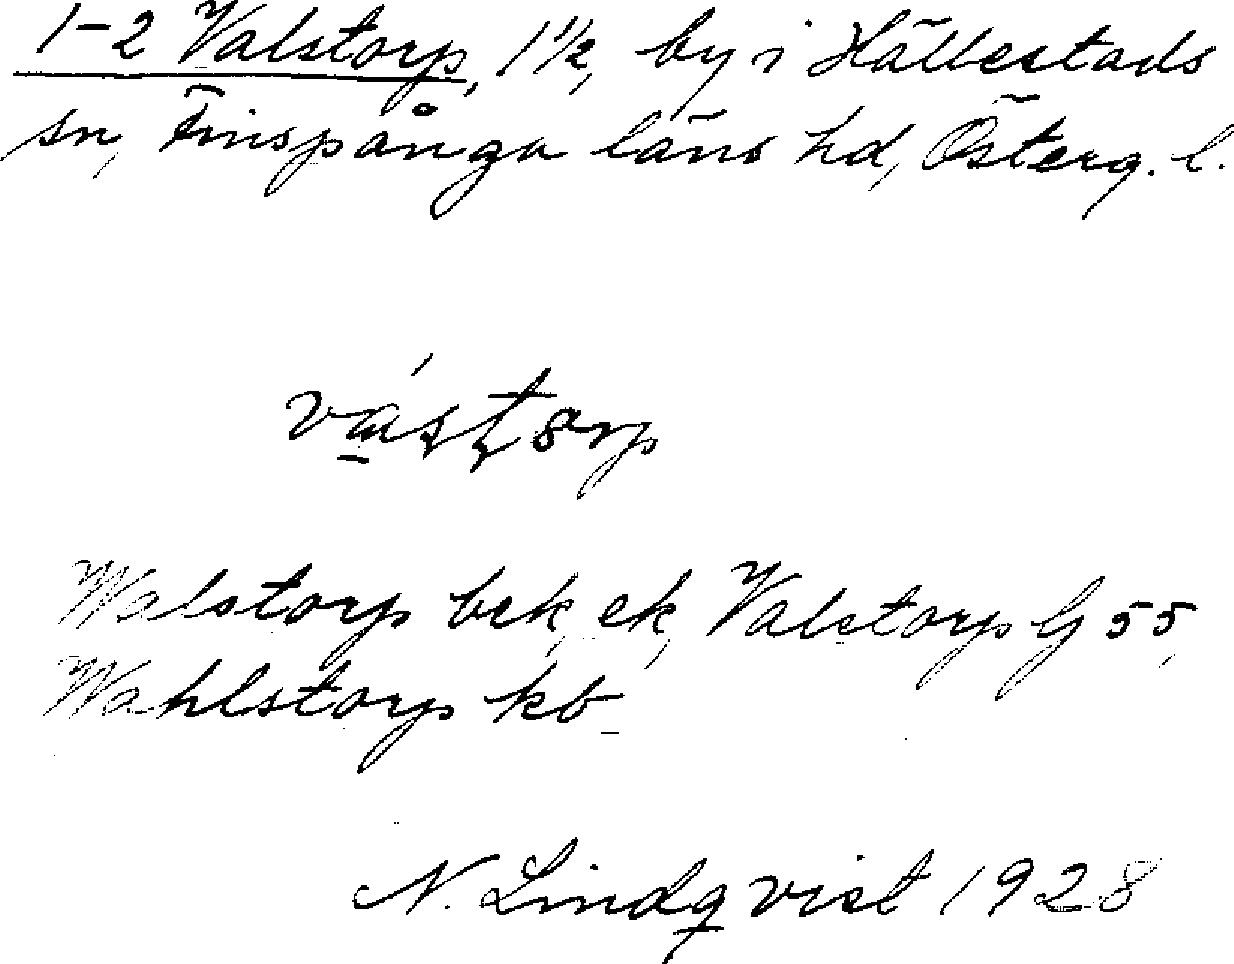 1-2 Valstorp, 1 1/2, by i Hällestads
sn, Finspånga läns hd, Österg. l.
Walstorp bek, ek, Valstorp G 55,
Wahlstorp kb
N. Lindqvist 1928